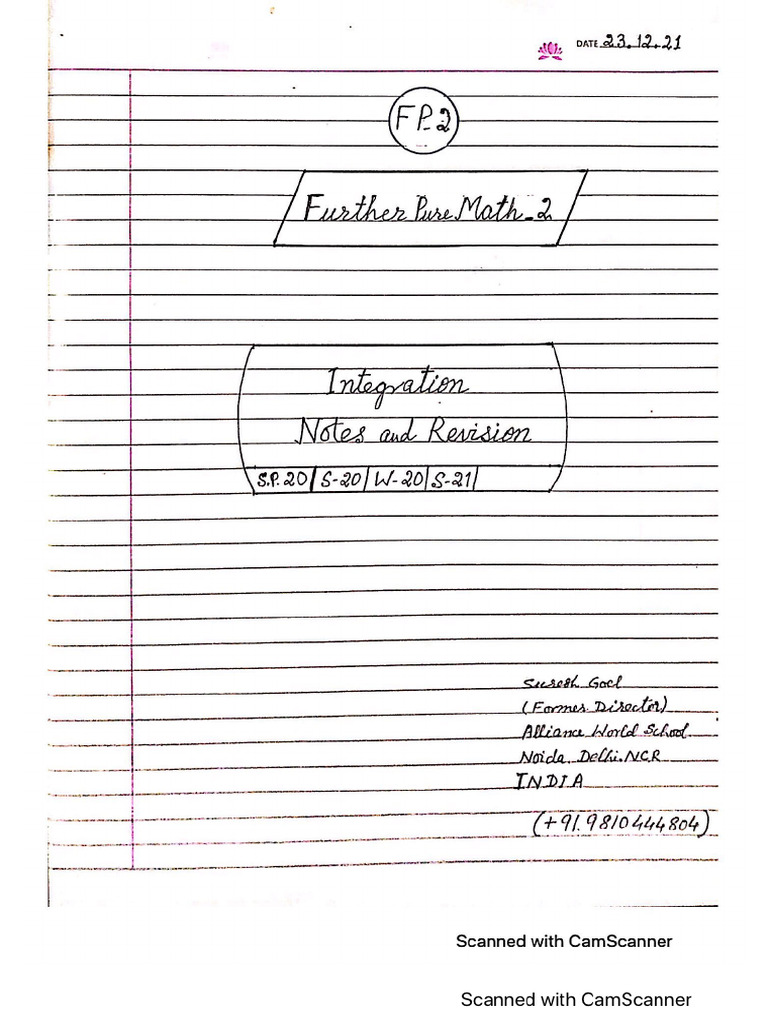 DATE 23.12.21
FP-2
Further Pure Math-2
Integration
Notes and Revision
S.P. 20/ S-20/ W-20/ S-21/
Suresh Goel
(Former Director)
Alliance World School
Noida, Delhi.NCR
INDIA
(+91.9810444804)
Scanned with CamScanner
Scanned with CamScanner